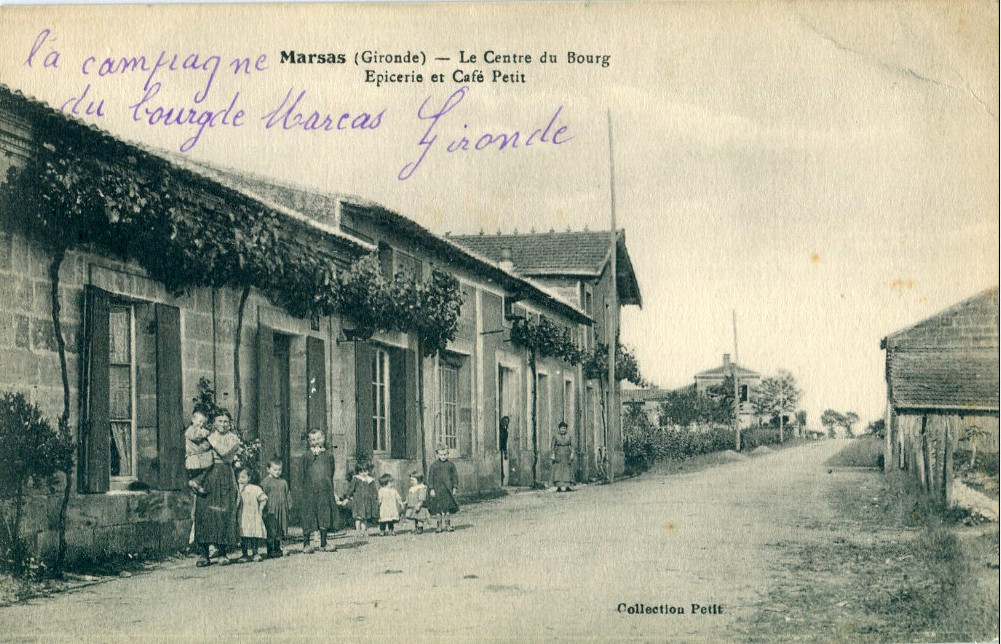 Marsas (Gironde) — Le Centre du Bourg
Epicerie et Café Petit
la campagne
du bourgde Marcas Gironde
Collection Petit